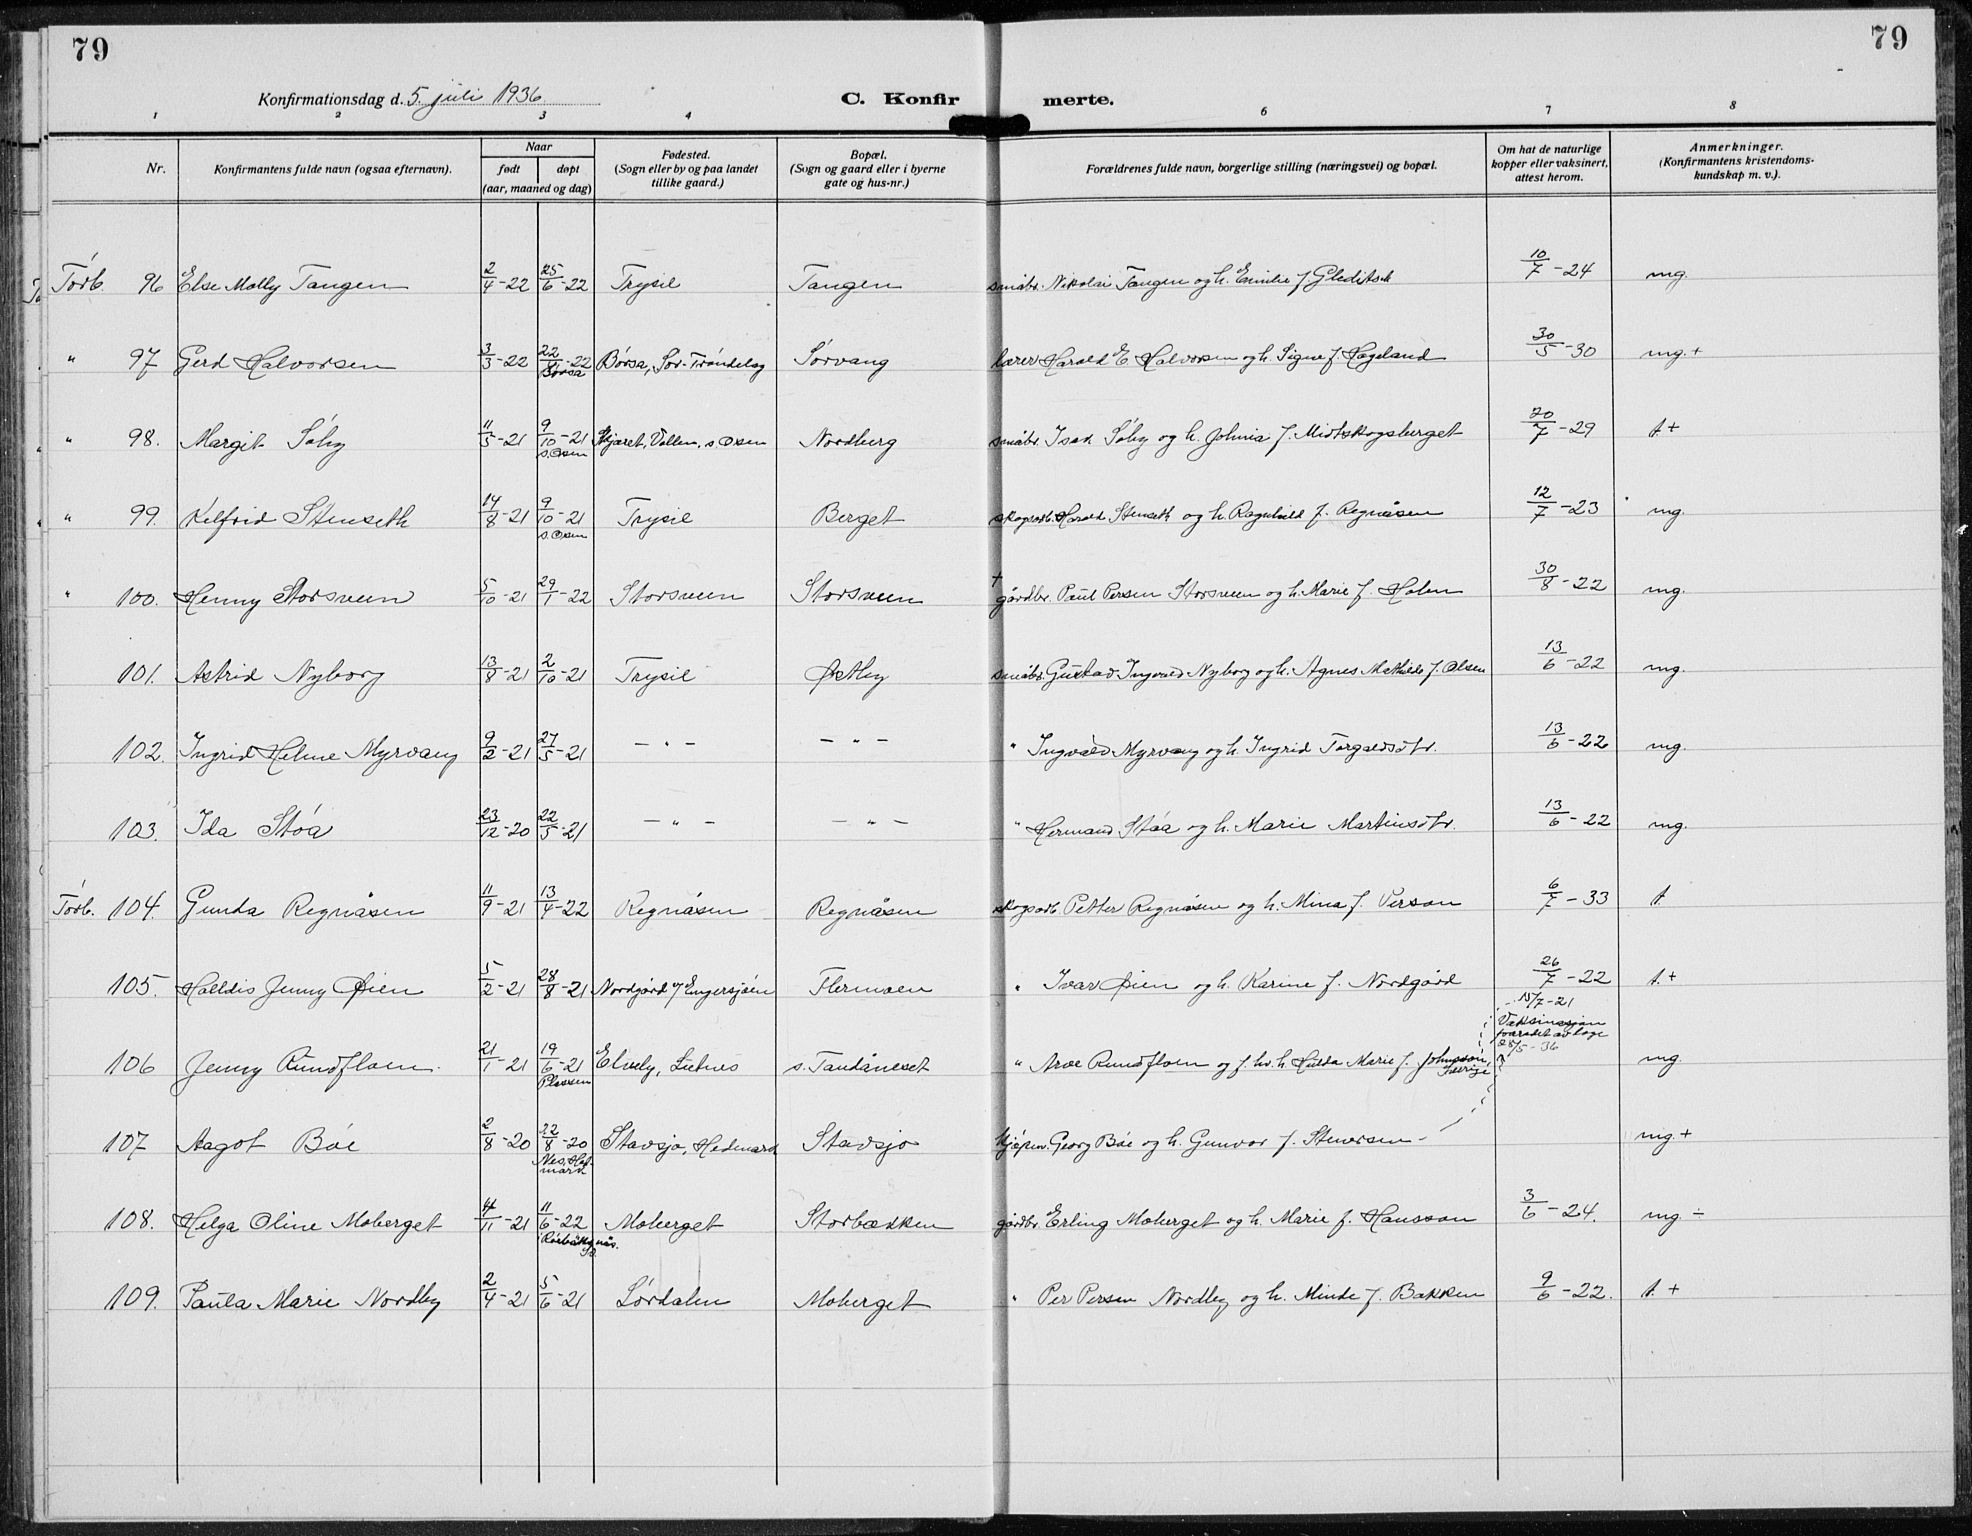 79
79
Konfirmationsdag d. 5. juli 1936
C. Konfirmerte.
1 2 3 4 6 7 8
Nr.
Konfirmantens fulde navn (ogsaa efternavn).
Naar
født døpt
(aar, maaned og dag)
Fødested.
(Sogn eller by og paa landet
tillike gaard.)
Bopæl.
(Sogn og gaard eller i byerne
gate og hus-nr.)
Forældrenes fulde navn, borgerlige stilling (næringsvei) og bopæl.
Om hat de naturlige
kopper eller vaksinert,
attest herom.
Anmerkninger.
(Konfirmantens kristendoms-
kundskap m. v.).
Törb. 96 Else Molly Tangen 2/4-22 25/6-22 Trysil Tangen småbr. Nikolai Tangen og h. Emilie f. Gleditsch 10/7-24 mg.
" 97 Gerd Halvorsen 3/3-22 22/-22 Börsa, Sör-Tröndelag Sörvang lærer Harald E Halvorsen og h. Signe f. Hageland 30/5-30 mg. +
Börsa
" 98. Margit Söby 11/5-21 9/10-21 Skjæret, Vollen, s. Osen Nordberg småbr. Isak Söby og h. Johnia f. Midtskogsberget 20/7-29 t. +
s. Osen
" 99. Kelfrid Stenseth 14/8-21 9/10-21 Trysil Berget skogsarb. Harald Stenseth og h. Ragnhild f. Regnåsen 12/7-23 mg.
s. Osen
" 100. Henny Storsveen 5/10-21 29/1-22 Storsveen Storsveen + gårdbr. Paul Persen Storsveen og h. Marie f. Holen 30/8-22 mg.
101. Astrid Nyborg 13/8-21 2/10-21 Trysil Østby småbr. Gustav Ingvald Nyborg og h. Agnes Mathilde f. Olsen 13/6-22 mg.
102. Ingrid Helene Myrvang 9/2-21 27/5-21 - " - - " - " Ingvald Myrvang og h. Ingrid Torgalsdtr. 13/6-22 mg.
103. Ida Stöa 23/12-20 22/5-21 - " - - " - " Hermand Stöa og h. Marie Martinsdtr. 13/6-22 mg.
Törb. 104. Gunda Regnåsen 11/9-21 13/4-22 Regnåsen Regnåsen skogsarb. Petter Regnåsen og h. Mina f. Person 6/7-33 t.
105. Halldis Jenny Øien 5/2-21 28/8-21 Nordgård/Engersjöen Flermoen " Ivar Øien og h. Karine f. Nordgård 26/7-22 t. +
15/7-21
Vaksinasjon
frarådet av lege
28/5-36
106 Jenny Rundfloen. 21/1-21 19/6-21 Elvely, Lutnes s. Tandåneset " Arve Rundfloen og f. hv. h. Hulda Marie f. Johnsson, mg.
Plassen
Sverige
107 Aagot Böe 2/8-20 22/8-20 Stavsjö, Hedmark Stavsjö kjöpm. Georg Böe og h. Gunvor f. Stenersen mg. +
Nes, Hed-
mark
108. Helga Oline Moberget 4/11-21 11/6-22 Moberget Storbækken gårdbr. Erling Moberget og h. Marie f. Hansson 3/6-24. mg. ÷
Rörbäcksnäs.
109. Paula Marie Nordby 2/4-21 5/6-21 Lördalen Moberget " Per Persen Nordby og h. Minde f. Bakken 9/6-22. t. +